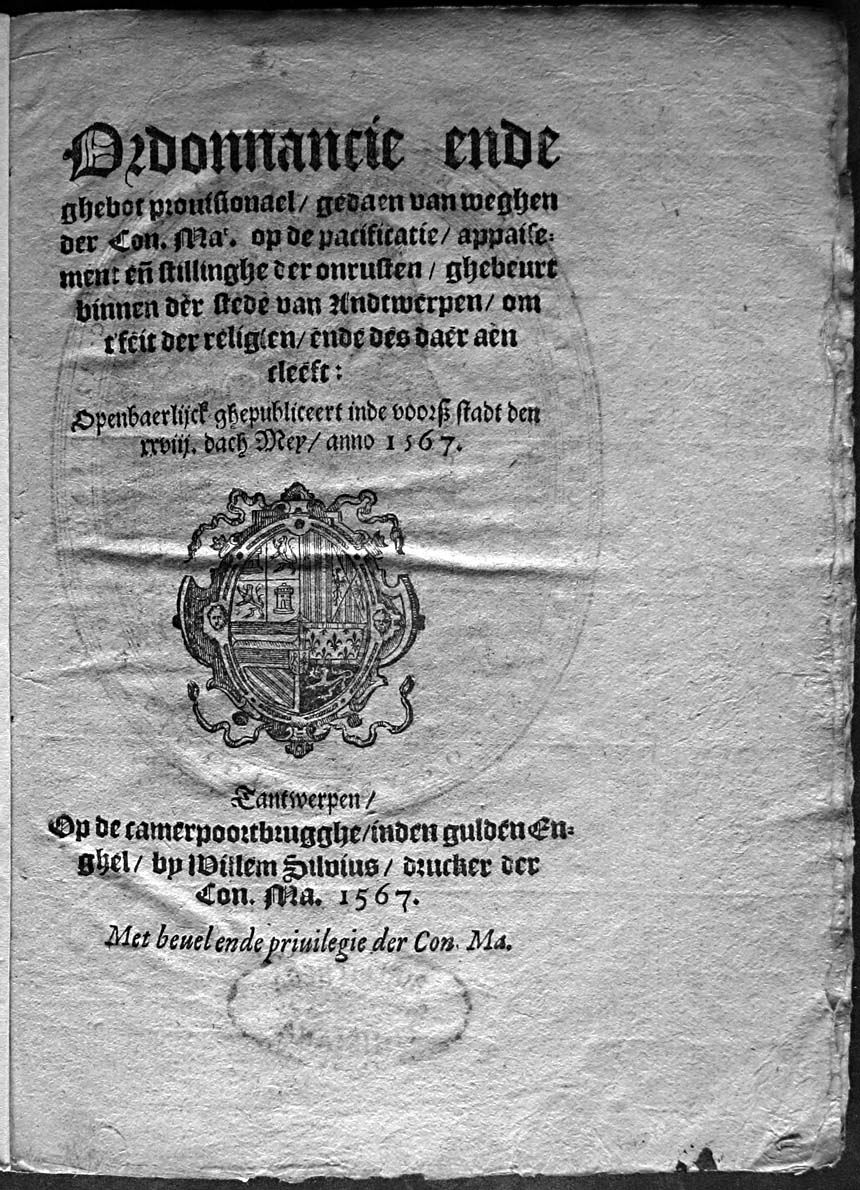 Ordonnancie ende
ghebot prouisionael/ gedaen van weghen
der Con. Maᵗ. op de pacificatie/ appaise-
ment eñ stillinghe der onrusten/ ghebeurt
binnen der stede van Andtwerpen/ om
t'feit der religien/ ende des daer aen
cleeft:
Openbaerlijck ghepubliceert inde voorß stadt den
xxviij. dach Mey/ anno 1567.
Tantwerpen/
Op de camerpoortbrugghe/inden gulden En-
ghel/ by Willem Siluius/ drucker der
Con. Ma. 1567.
Met beuel ende priuilegie der Con. Ma.